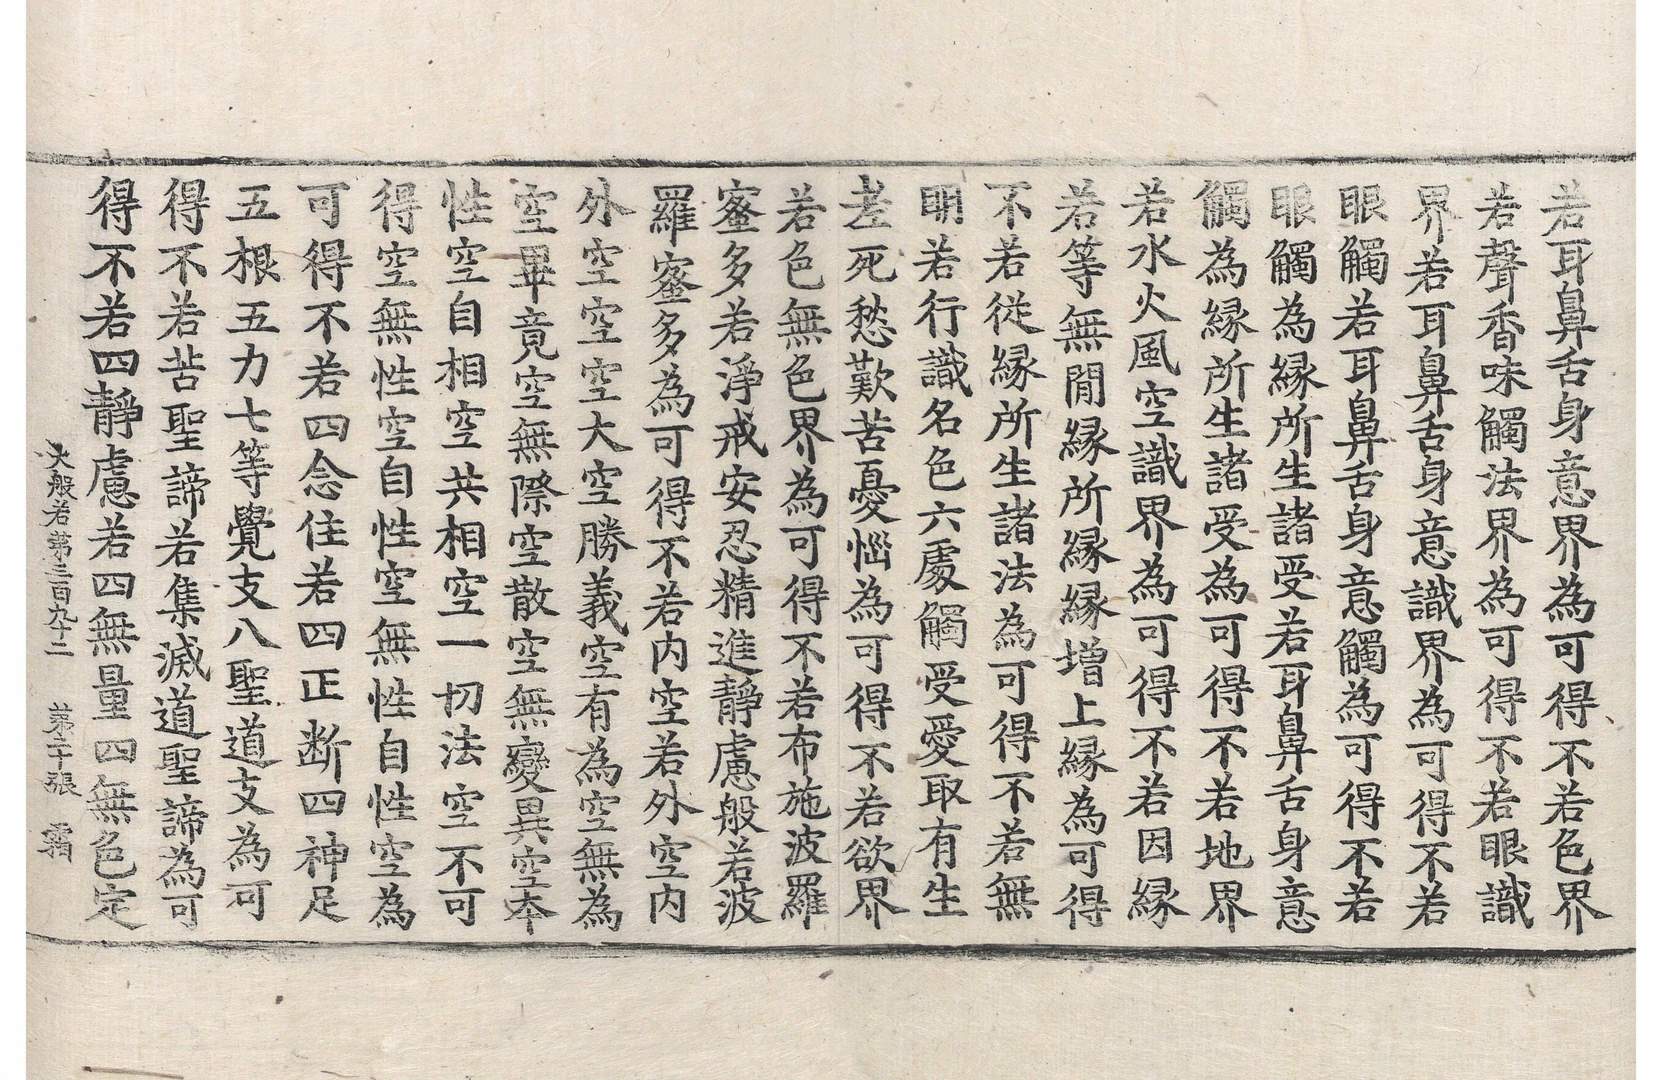 若耳鼻舌身意界為可得不若色界
若聲香味觸法界為可得不若眼識
界若耳鼻舌身意識界為可得不若
眼觸若耳鼻舌身意觸為可得不若
眼觸為縁所生諸受若耳鼻舌身意
觸為縁所生諸受為可得不若地界
若水火風空識界為可得不若因縁
若等無閒縁所縁縁增上縁為可得
不若從縁所生諸法為可得不若無
明若行識名色六處觸受愛取有生
老死愁歎苦憂惱為可得不若欲界
若色無色界為可得不若布施波羅
蜜多若淨戒安忍精進靜慮般若波
羅蜜多為可得不若内空若外空内
外空空空大空勝義空有為空無為
空畢竟空無際空散空無變異空本
性空自相空共相空一切法空不可
得空無性空自性空無性自性空為
可得不若四念住若四正断四神足
五根五力七等覺支八聖道支為可
得不若苦聖諦若集滅道聖諦為可
得不若四靜慮若四無量四無色定
大般若苐三百九十二 苐二十張 霜